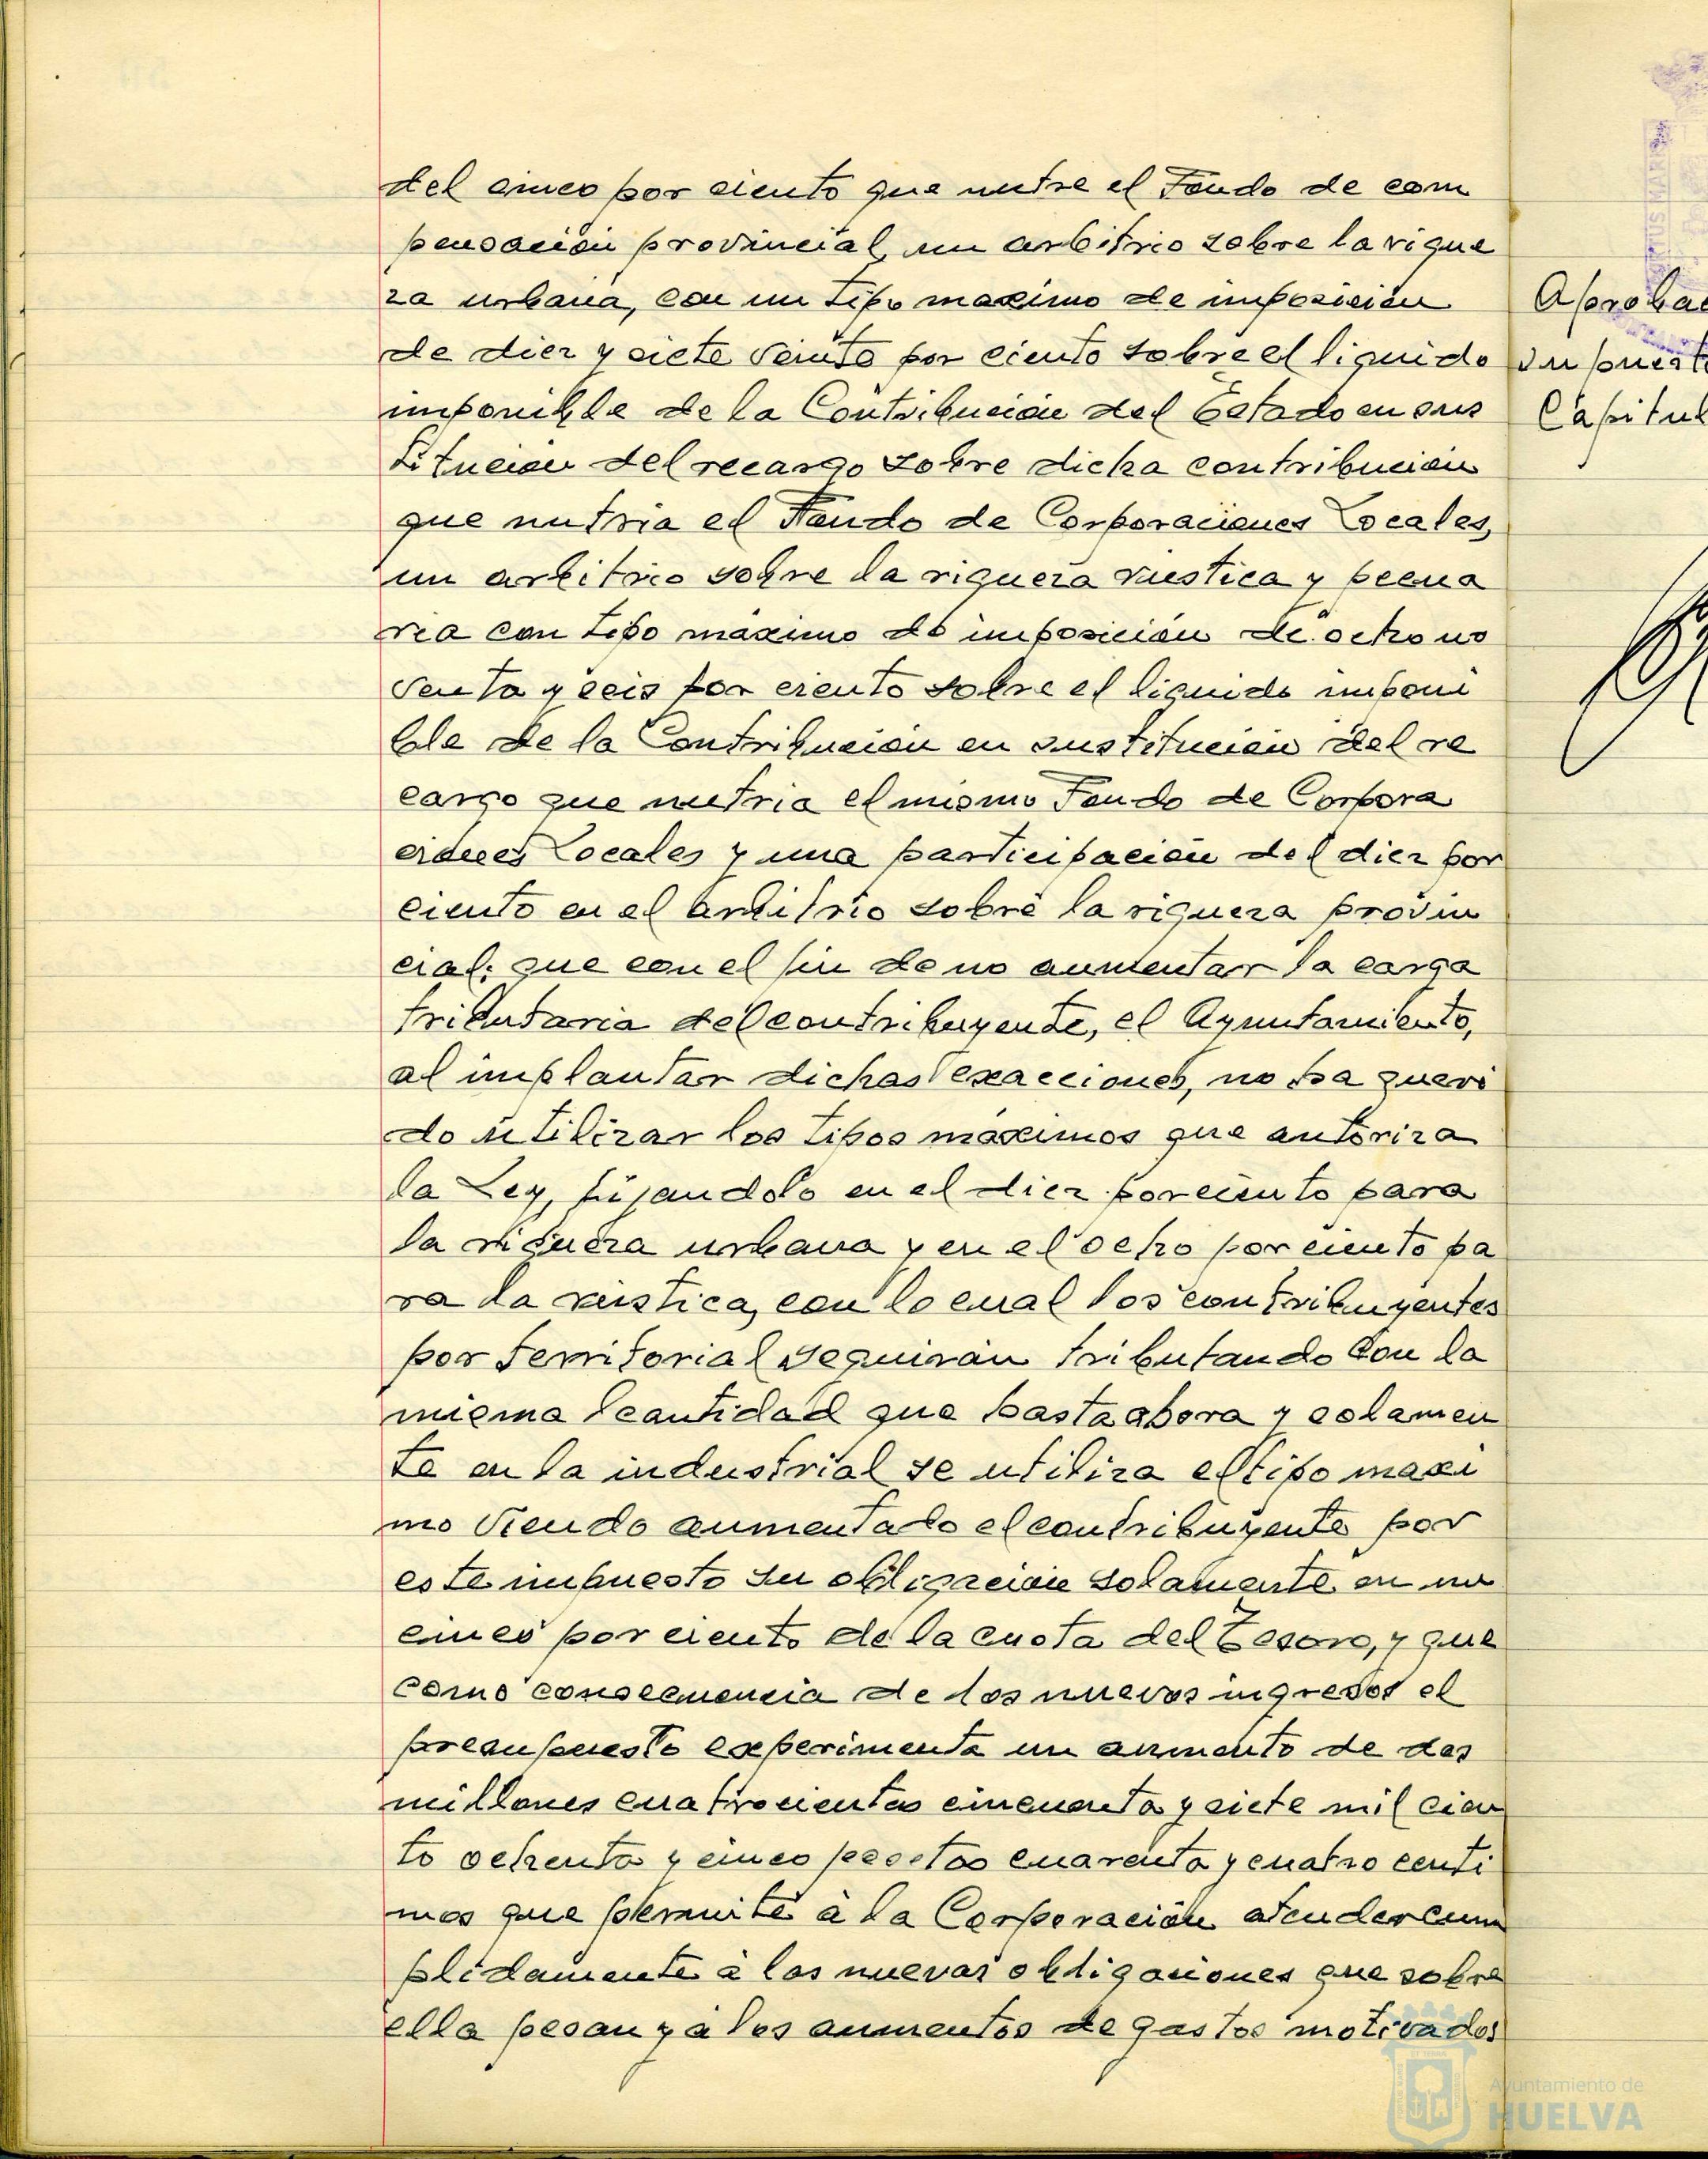 del cinco por ciento que nutre el Fondo de com
pensación provincial, un arbitrio sobre la rique
za urbana, con un tipo maximo de imposición
de diez y siete veinte por ciento sobre el liquido
imponible de la Contribución del Estado en sus
titucion del recargo sobre dicha contribución
que nutria el Fondo de Corporaciones Locales,
un arbitrio sobre la riqueza rústica y pecua
ria con tipo máximo de imposición de ocho no
venta y seis por ciento sobre el liquido imponi
ble de la Contribución en sustitución del re
cargo que nutria el mismo Fondo de Corpora
ciones Locales y una participación del diez por
ciento en el arbitrio sobre la riqueza provin
cial: que con el fin de no aumentar la carga
tributaria del contribuyente, el Ayuntamiento,
al implantar dichas exacciones, no ha queri
do utilizar los tipos máximos que autoriza
la Ley, fijandolo en el diez por ciento para
la riqueza urbana y en el ocho por ciento pa
ra la rústica, con lo cual los contribuyentes
por territorial seguirán tributando con la
misma cantidad que hasta ahora y solamen
te en la industrial se utiliza el tipo maxi
mo viendo aumentado el contribuyente por
este impuesto su obligación solamente en un
cinco por ciento de la cuota del Tesoro, y que
como consecuencia de los nuevos ingresos el
presupuesto experimenta un aumento de dos
millones cuatrocientas cincuenta y siete mil cien
to ochenta y cinco pesetas cuarenta y cuatro centi
mos que permite à la Corporación atender cum
plidamente à las nuevas obligaciones que sobre
ella pesan y à los aumentos de gastos motivados
Aprobac
supuest
Capitul
Ayuntamiento de
HUELVA